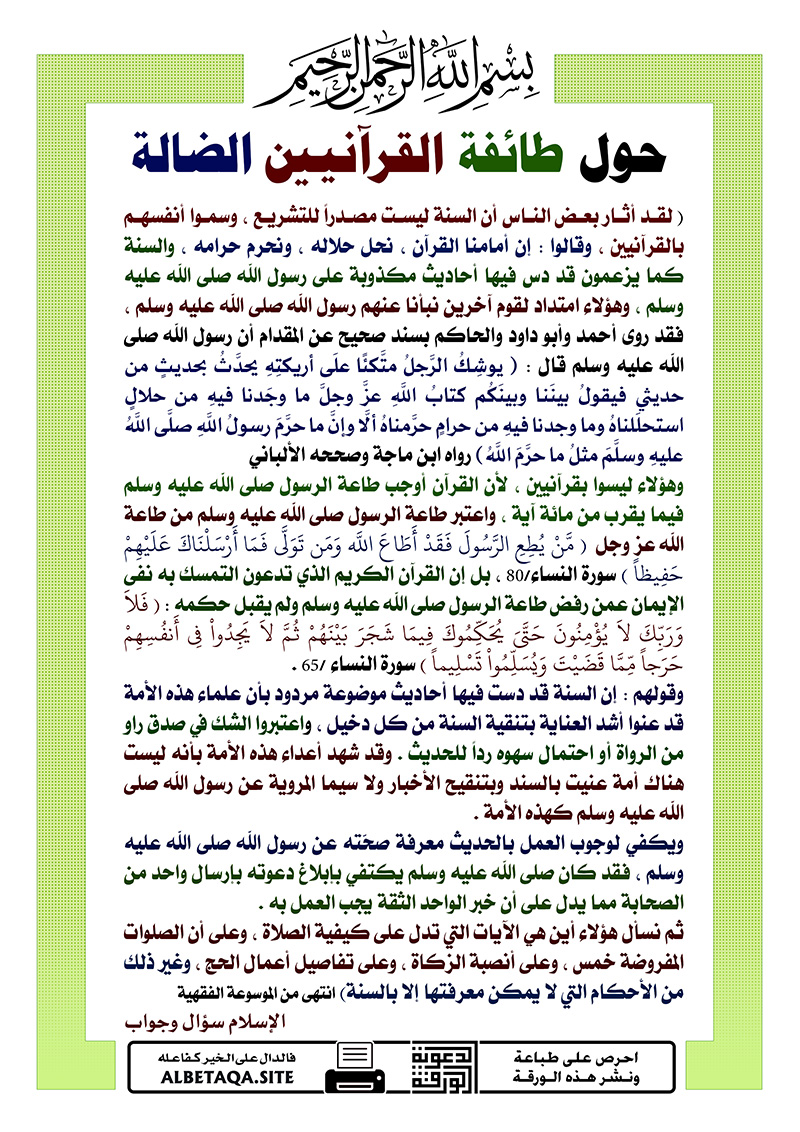 بِسْمِ اللَّهِ الرَّحْمَنِ الرَّحِيمِ
حول طائفة القرآنيين الضالة
( لقد أثار بعض الناس أن السنة ليست مصدراً للتشريع ، وسموا أنفسهم
بالقرآنيين ، وقالوا : إن أمامنا القرآن ، نحل حلاله ، ونحرم حرامه ، والسنة
كما يزعمون قد دس فيها أحاديث مكذوبة على رسول الله صلى الله عليه
وسلم ، وهؤلاء امتداد لقوم آخرين نبأنا عنهم رسول الله صلى الله عليه وسلم ،
فقد روى أحمد وأبو داود والحاكم بسند صحيح عن المقدام أن رسول الله صلى
الله عليه وسلم قال : ( يوشِكُ الرَّجلُ متَّكئًا علَى أريكتِهِ يحدَّثُ بحديثٍ من
حديثي فيقولُ بينَنا وبينَكُم كتابُ اللَّهِ عزَّ وجلَّ ما وجَدنا فيهِ من حلالٍ
استحلَلناهُ وما وجدنا فيهِ من حرامٍ حرَّمناهُ ألَّا وإنَّ ما حرَّمَ رسولُ اللَّهِ صلَّى اللَّهُ
عليهِ وسلَّمَ مثلُ ما حرَّمَ اللَّهُ ) رواه ابن ماجة وصححه الألباني
وهؤلاء ليسوا بقرآنيين ، لأن القرآن أوجب طاعة الرسول صلى الله عليه وسلم
فيما يقرب من مائة آية ، واعتبر طاعة الرسول صلى الله عليه وسلم من طاعة
الله عز وجل ( مَّنْ يُطِعِ الرَّسُولَ فَقَدْ أَطَاعَ اللّهَ وَمَن تَوَلَّى فَمَا أَرْسَلْنَاكَ عَلَيْهِمْ
حَفِيظاً ) سورة النساء/80 ، بل إن القرآن الكريم الذي تدعون التمسك به نفى
الإيمان عمن رفض طاعة الرسول صلى الله عليه وسلم ولم يقبل حكمه : ( فَلاَ
وَرَبِّكَ لاَ يُؤْمِنُونَ حَتَّىَ يُحَكِّمُوكَ فِيمَا شَجَرَ بَيْنَهُمْ ثُمَّ لاَ يَجِدُواْ فِي أَنفُسِهِمْ
حَرَجاً مِّمَّا قَضَيْتَ وَيُسَلِّمُواْ تَسْلِيماً ) سورة النساء /65 .
وقولهم : إن السنة قد دست فيها أحاديث موضوعة مردود بأن علماء هذه الأمة
قد عنوا أشد العناية بتنقية السنة من كل دخيل ، واعتبروا الشك في صدق راو
من الرواة أو احتمال سهوه رداً للحديث . وقد شهد أعداء هذه الأمة بأنه ليست
هناك أمة عنيت بالسند وبتنقيح الأخبار ولا سيما المروية عن رسول الله صلى
الله عليه وسلم كهذه الأمة .
ويكفي لوجوب العمل بالحديث معرفة صحّته عن رسول الله صلى الله عليه
وسلم ، فقد كان صلى الله عليه وسلم يكتفي بإبلاغ دعوته بإرسال واحد من
الصحابة مما يدل على أن خبر الواحد الثقة يجب العمل به .
ثم نسأل هؤلاء أين هي الآيات التي تدل على كيفية الصلاة ، وعلى أن الصلوات
المفروضة خمس ، وعلى أنصبة الزكاة ، وعلى تفاصيل أعمال الحج ، وغير ذلك
من الأحكام التي لا يمكن معرفتها إلا بالسنة) انتهى من الموسوعة الفقهية
الإسلام سؤال وجواب
احرص على طباعة
ونشر هذه الورقة
الورقة الدعوية
فالدال على الخير كفاعله
ALBETAQA.SITE